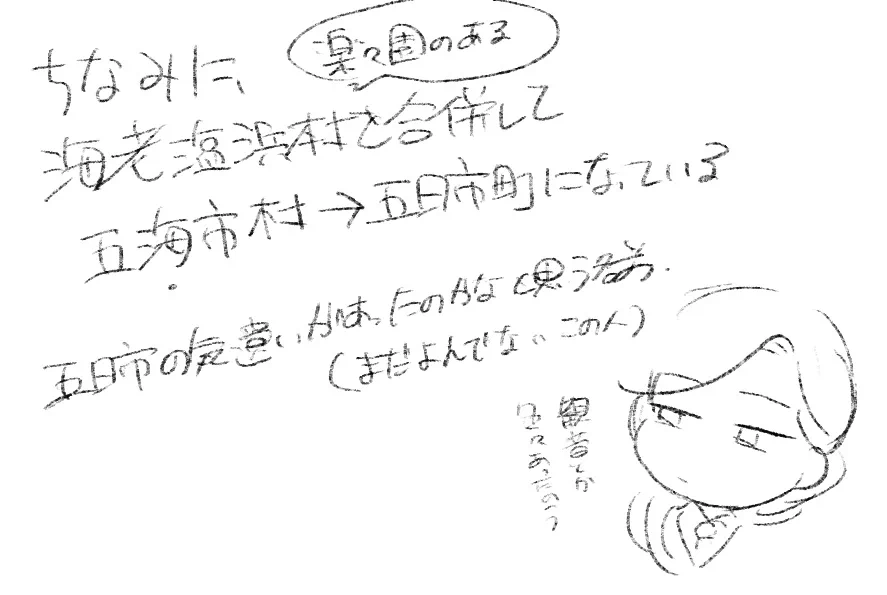 ちなみに、
楽々園のある
海老塩浜村と合併して
五海市村→五日市町になっている
五日市の気遣いがあったのかなと思う名前.
(まだよんでないこの人)
観音とか
色々あったのつ